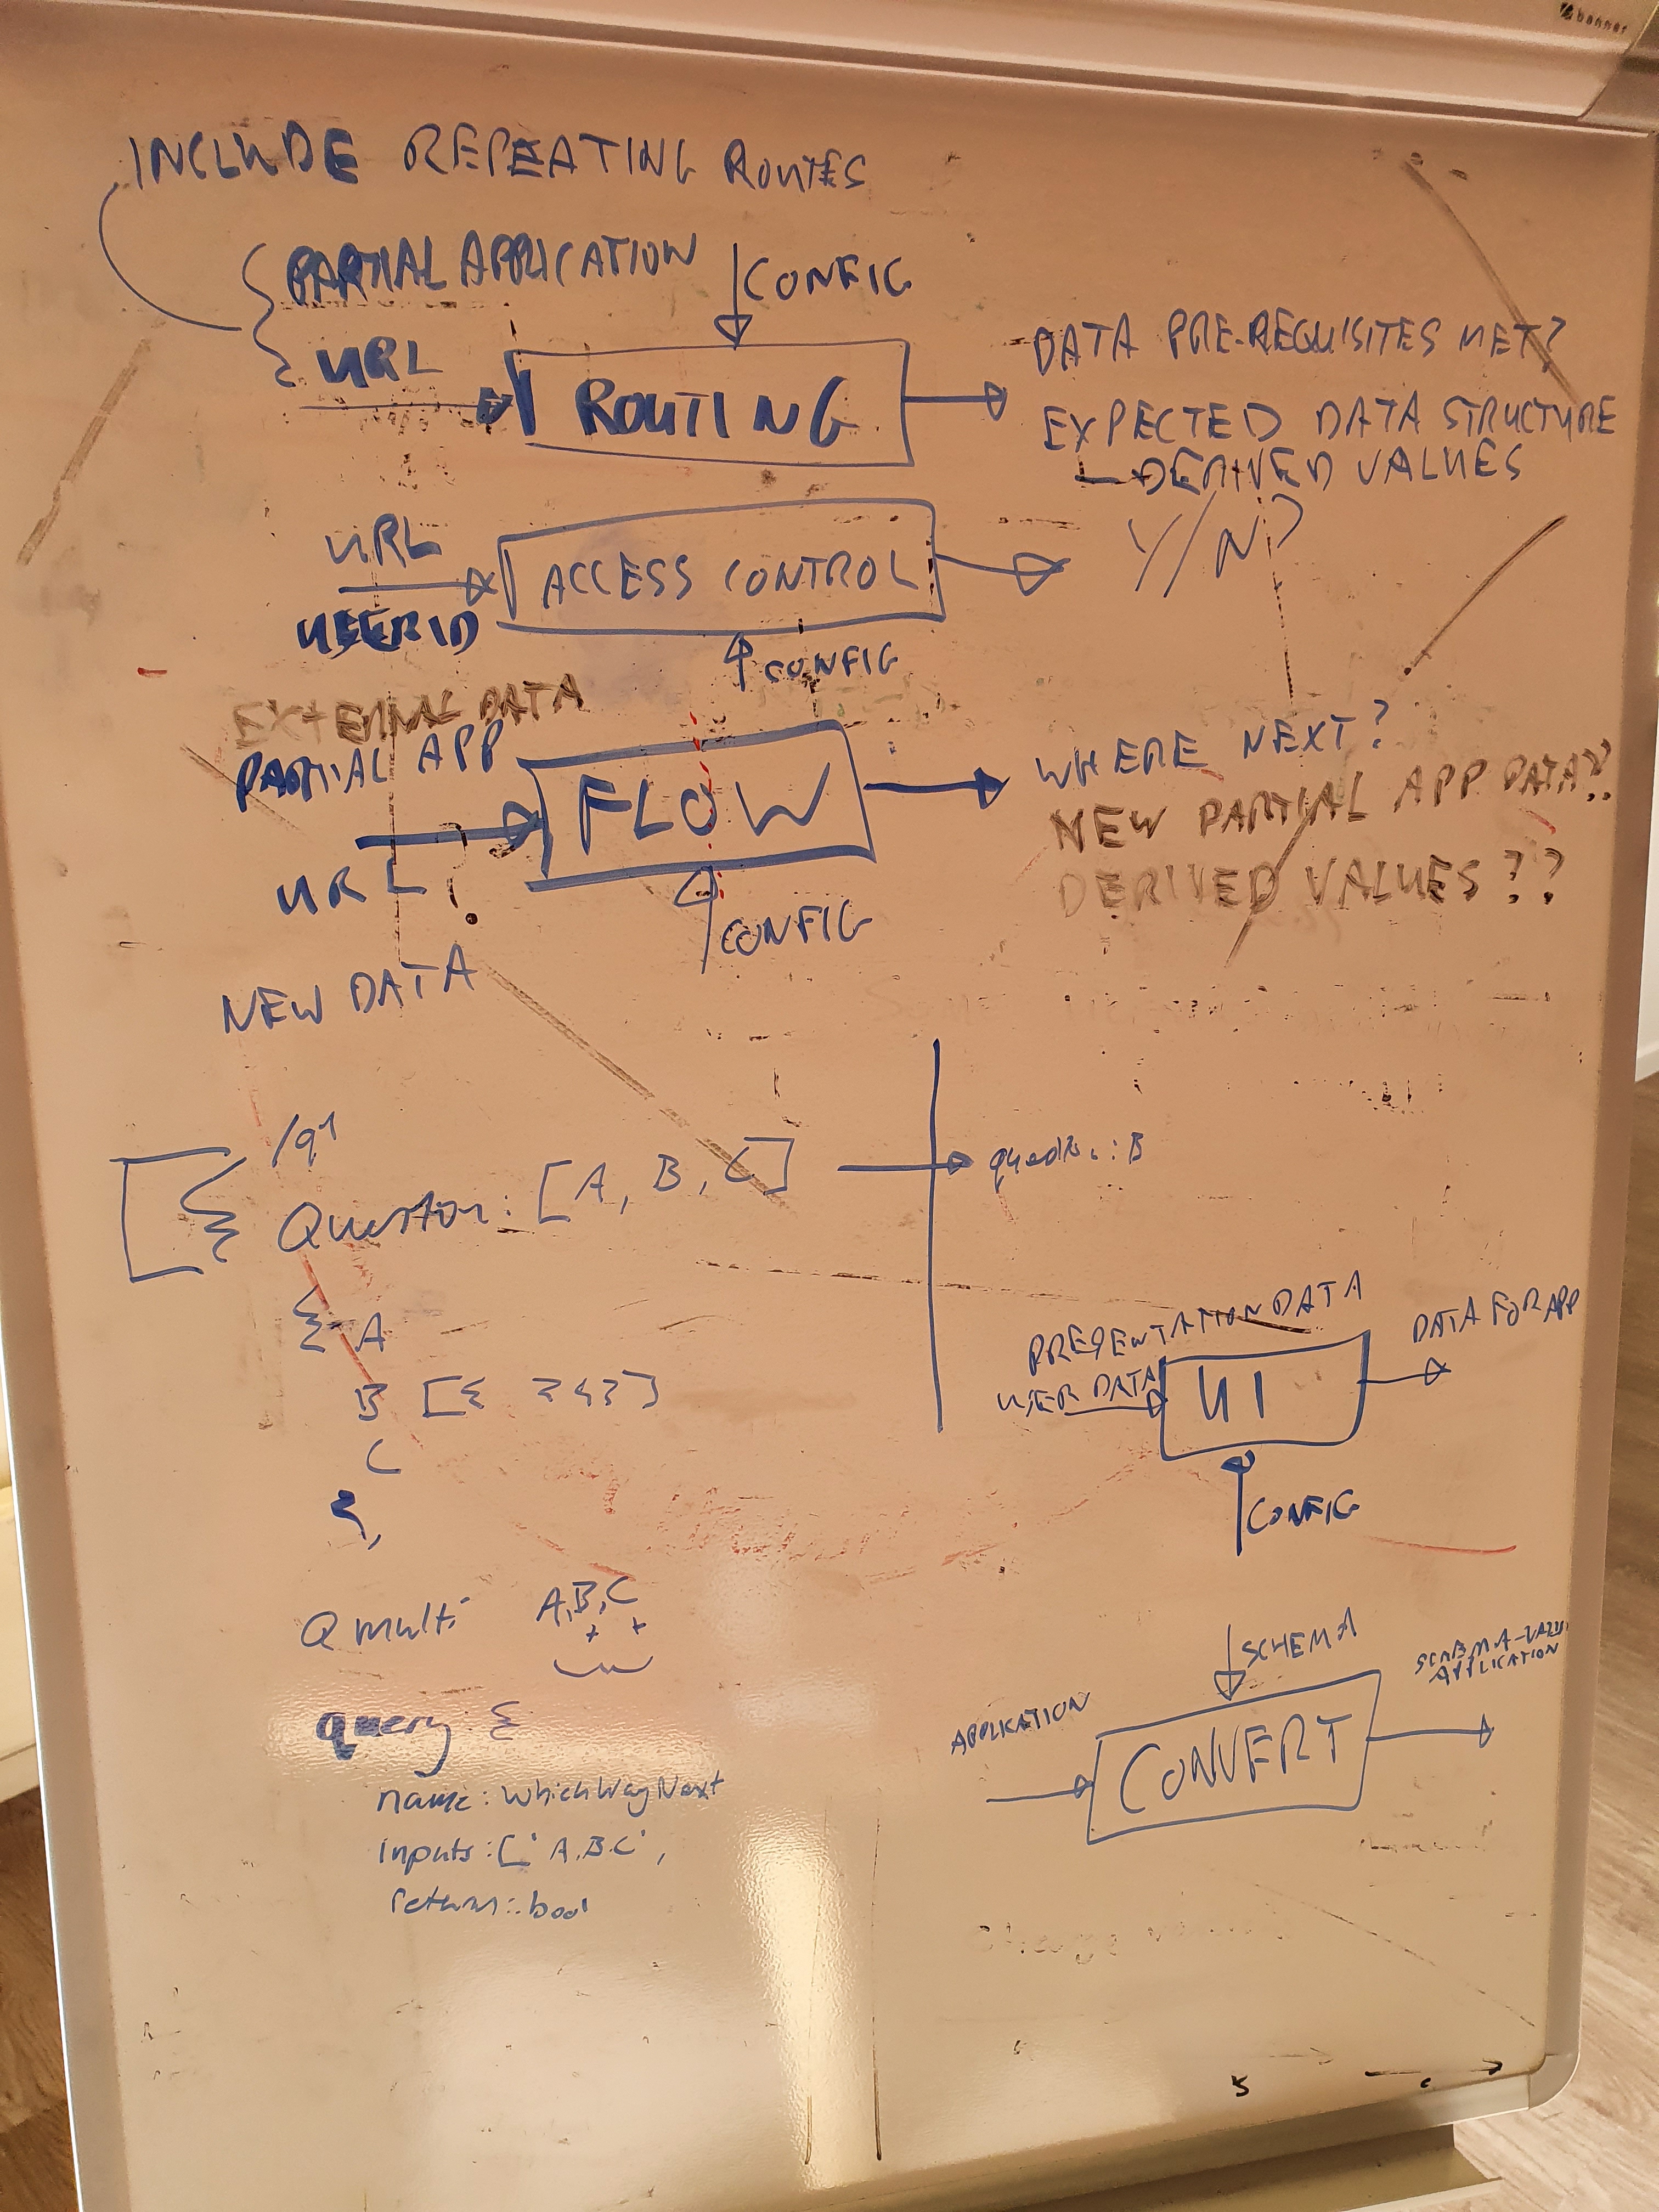 banner
INCLUDE REPEATING ROUTES
PARTIAL APPLICATION
CONFIG
URL
ROUTING
DATA PRE-REQUISITES MET?
EXPECTED DATA STRUCTURE
DERIVED VALUES
URL
USERID
ACCESS CONTROL
Y/N?
CONFIG
EXTERNAL DATA
PARTIAL APP
URL?
NEW DATA
FLOW
CONFIG
WHERE NEXT?
NEW PARTIAL APP DATA??
DERIVED VALUES??
/q1
Question: [A, B, C]
: B
{ A
B [{ }{}]
C
},
Q multi A,B,C
+ +
query {
name: WhichWayNext
inputs: ['A.B.C',
return: bool
PRESENTATION DATA
USER DATA
UI
DATA FOR APP
CONFIG
SCHEMA
APPLICATION
CONVERT
SCHEMA-VALID
APPLICATION